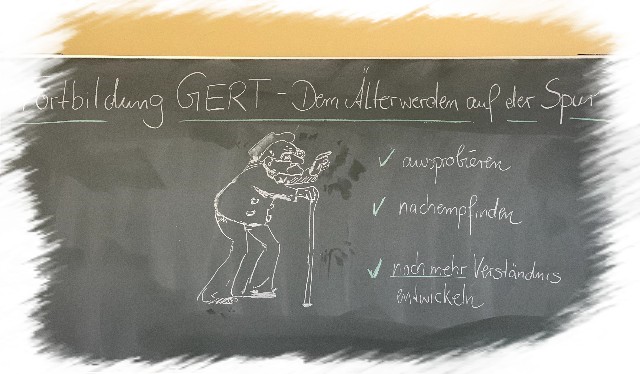 Fortbildung GERT - Dem Älterwerden auf der Spur
ausprobieren
nachempfinden
noch mehr Verständnis
entwickeln